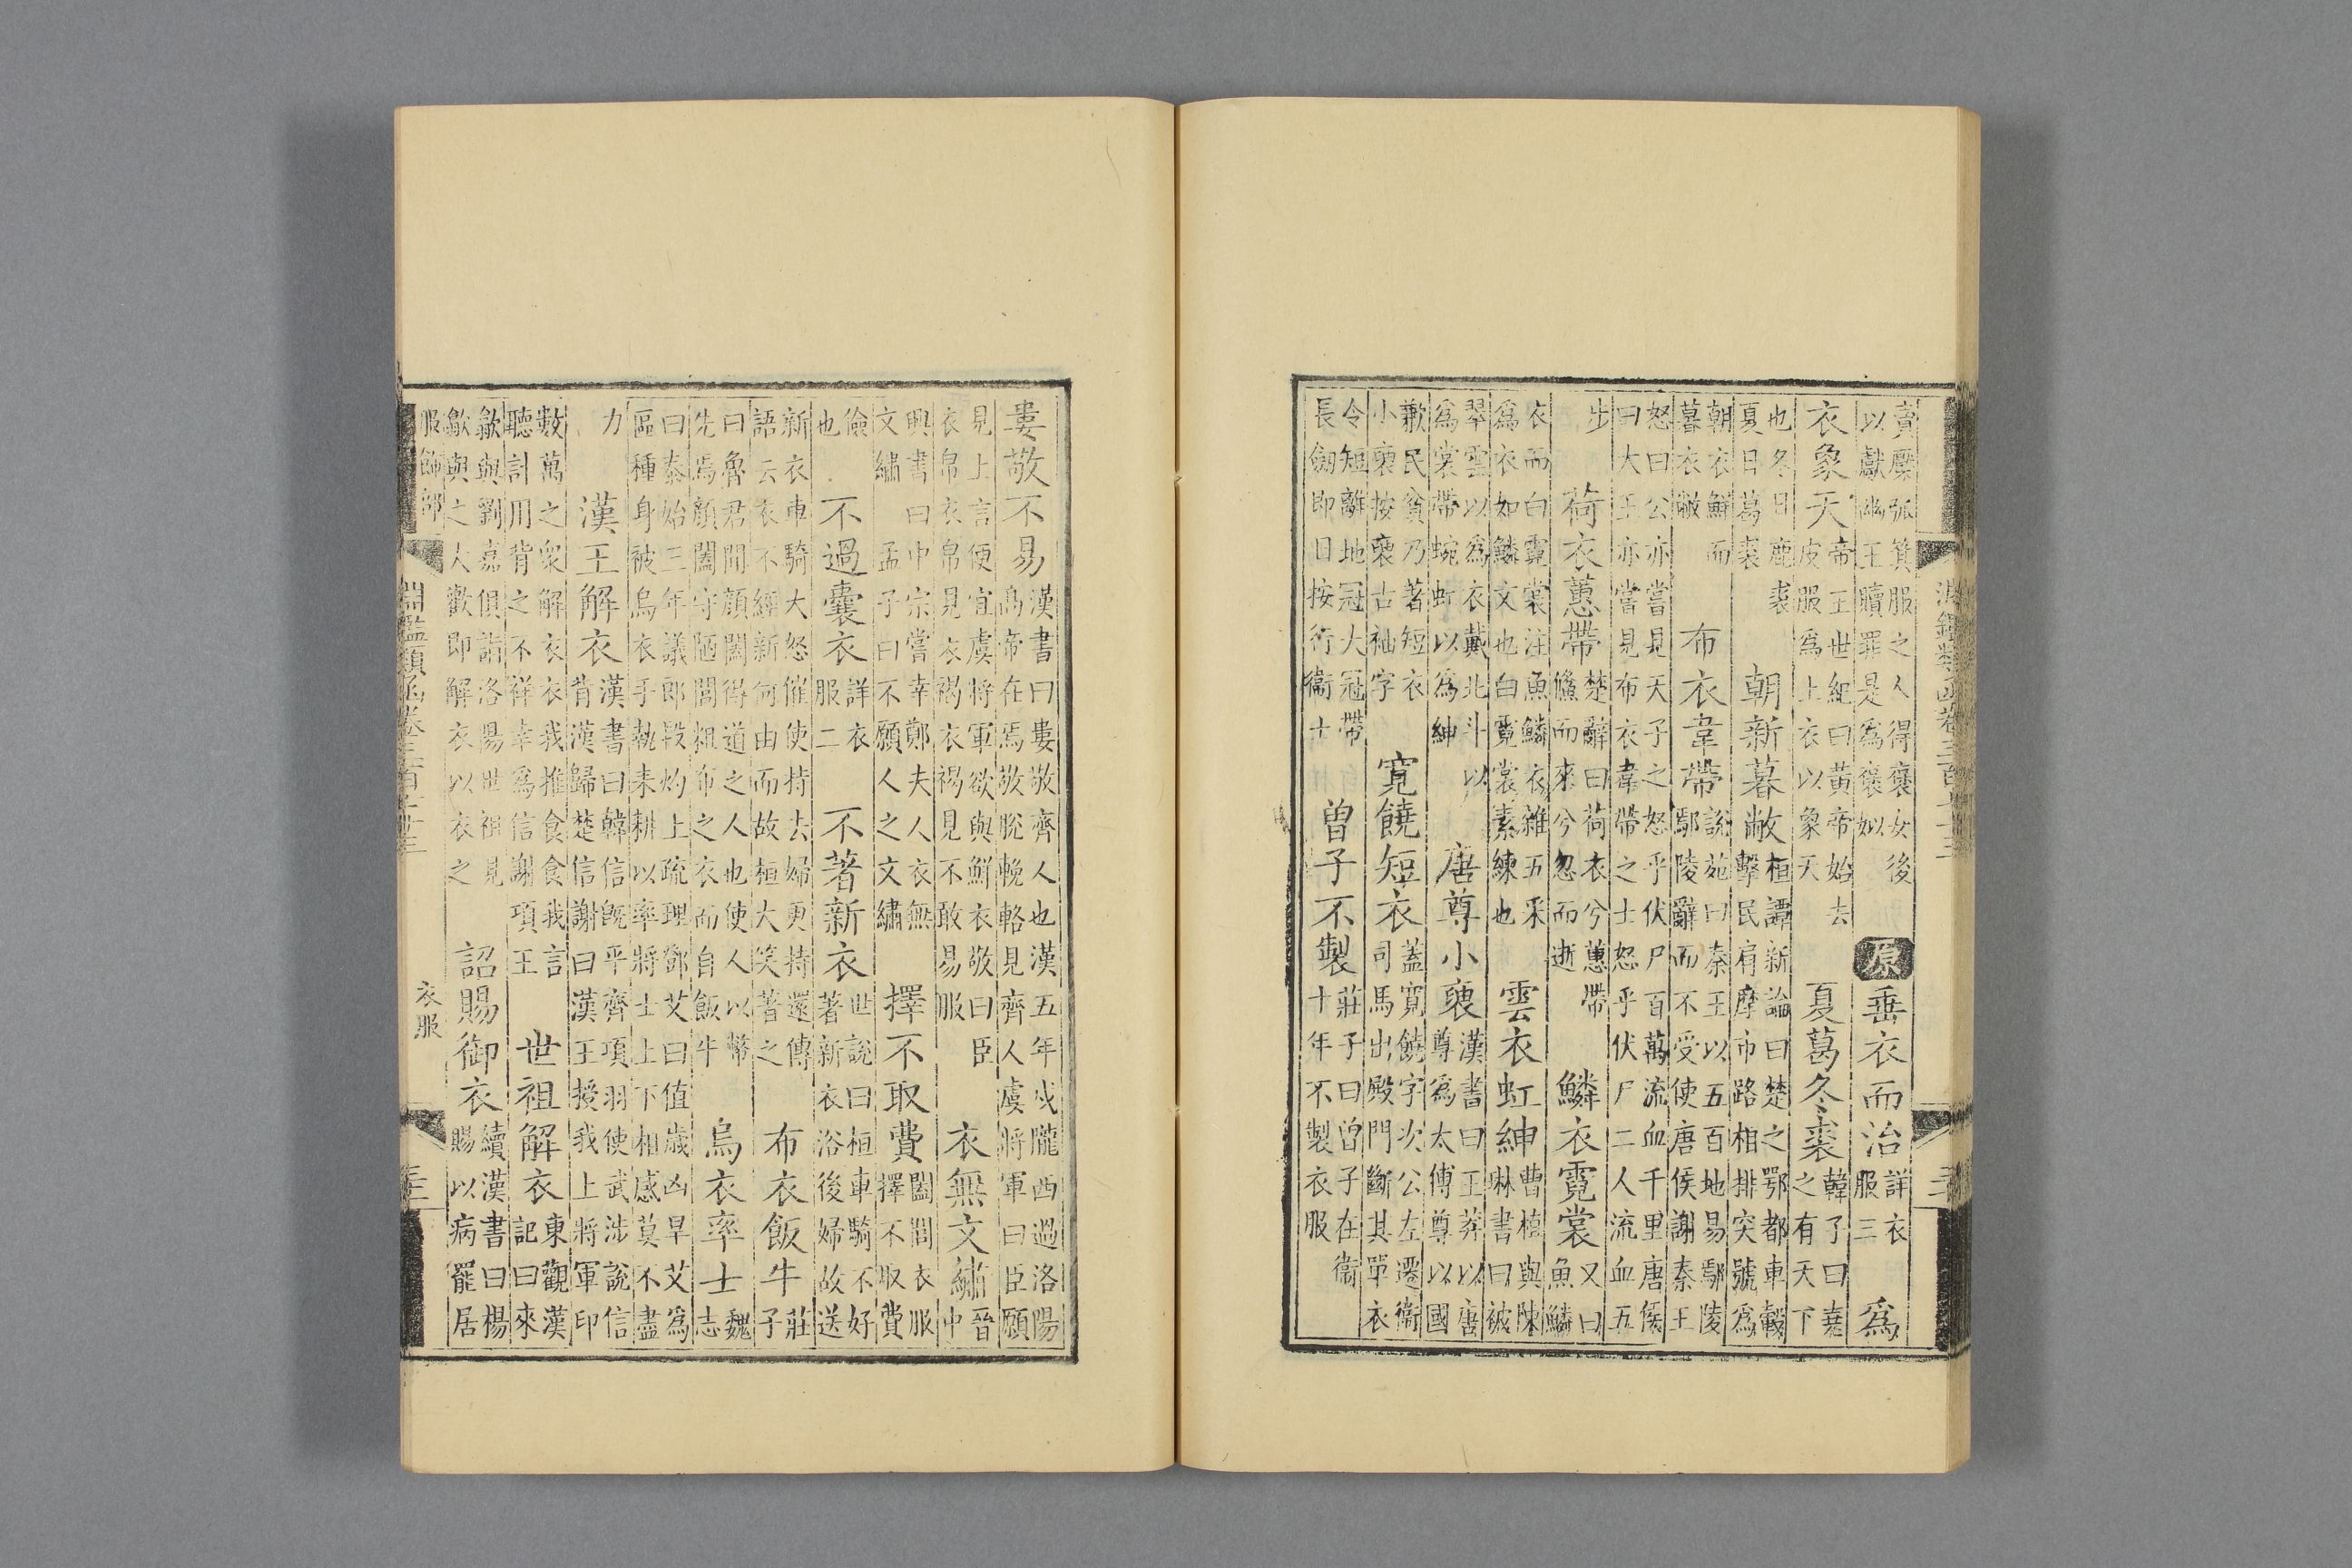 賣檿弧箕服之人得褒女後
以獻幽王贖罪是為褒姒
原
垂衣而治
詳衣
服三
為
衣象天
帝王世紀曰黃帝始去
皮服為上衣以象天
夏葛冬裘
韓子曰堯
之有天下
也冬日鹿裘
夏日葛裘
朝新暮敝
桓譚新論曰楚之鄂都車轂
擊民肩摩市路相排突號為
朝衣鮮而
暮衣敝
布衣韋帶
說苑曰秦王以五百地易鄢陵
鄢陵辭而不受使唐侯謝秦王
怒曰公亦嘗見天子之怒乎伏尸百萬流血千里唐侯
曰大王亦嘗見布衣韋帶之士怒乎伏尸二人流血五
步
荷衣蕙帶
楚辭曰荷衣兮蕙帶
儵而來兮忽而逝
鱗衣霓裳
又曰
魚鱗
衣而白霓裳注魚鱗衣雜五采
為衣如鱗文也白霓裳素練也
雲衣虹紳
曹植與陳
琳書曰被
翠雲以為衣戴北斗以
為裳帶蜿虹以為紳
唐尊小褏
漢書曰王莽以唐
尊為太傅尊以國
歉民貧乃著短衣
小褏按褏古袖字
寬饒短衣
蓋寬饒字次公左遷衞
司馬出殿門斷其單衣
令短離地冠大冠帶
長劒即日按行衞士
曾子不製
莊子曰曾子在衞
十年不製衣服
婁敬不易
漢書曰婁敬齊人也漢五年戍隴西過洛陽
高帝在焉敬脫輓輅見齊人虞將軍曰臣願
見上言便宜虞將軍欲與鮮衣敬曰臣
衣帛衣帛見衣褐衣褐見不敢易服
衣無文繡
晉
中
興書曰中宗嘗幸鄭夫人衣無
文繡孟子曰不願人之文繡
擇不取費
闔閭衣服
擇不取費
儉
也
不過囊衣
詳衣
服二
不著新衣
世說曰桓車騎不好
著新衣浴後婦故送
新衣車騎大怒催使持去婦更持還傳
語云衣不經新何由而故桓大笑著之
布衣飯牛
莊
子
曰魯君聞顏闔得道之人也使人以幣
先焉顏闔守陋閭粗布之衣而自飯牛
烏衣率士
魏
志
曰泰始三年議郎段灼上疏理鄧艾曰值歲凶旱艾為
區種身被烏衣手執耒耕以率將士上下相感莫不盡
力
漢王解衣
漢書曰韓信既平齊項羽使武涉說信
背漢歸楚信謝曰漢王授我上將軍印
數萬之衆解衣衣我推食食我言
聽計用背之不祥幸為信謝項王
世祖解衣
東觀漢
記曰來
歙與劉嘉俱詣洛陽世祖見
歙與之大歡即解衣以衣之
詔賜御衣
續漢書曰楊
賜以病罷居
服飾部
淵鑑類函卷三百七十三
衣服